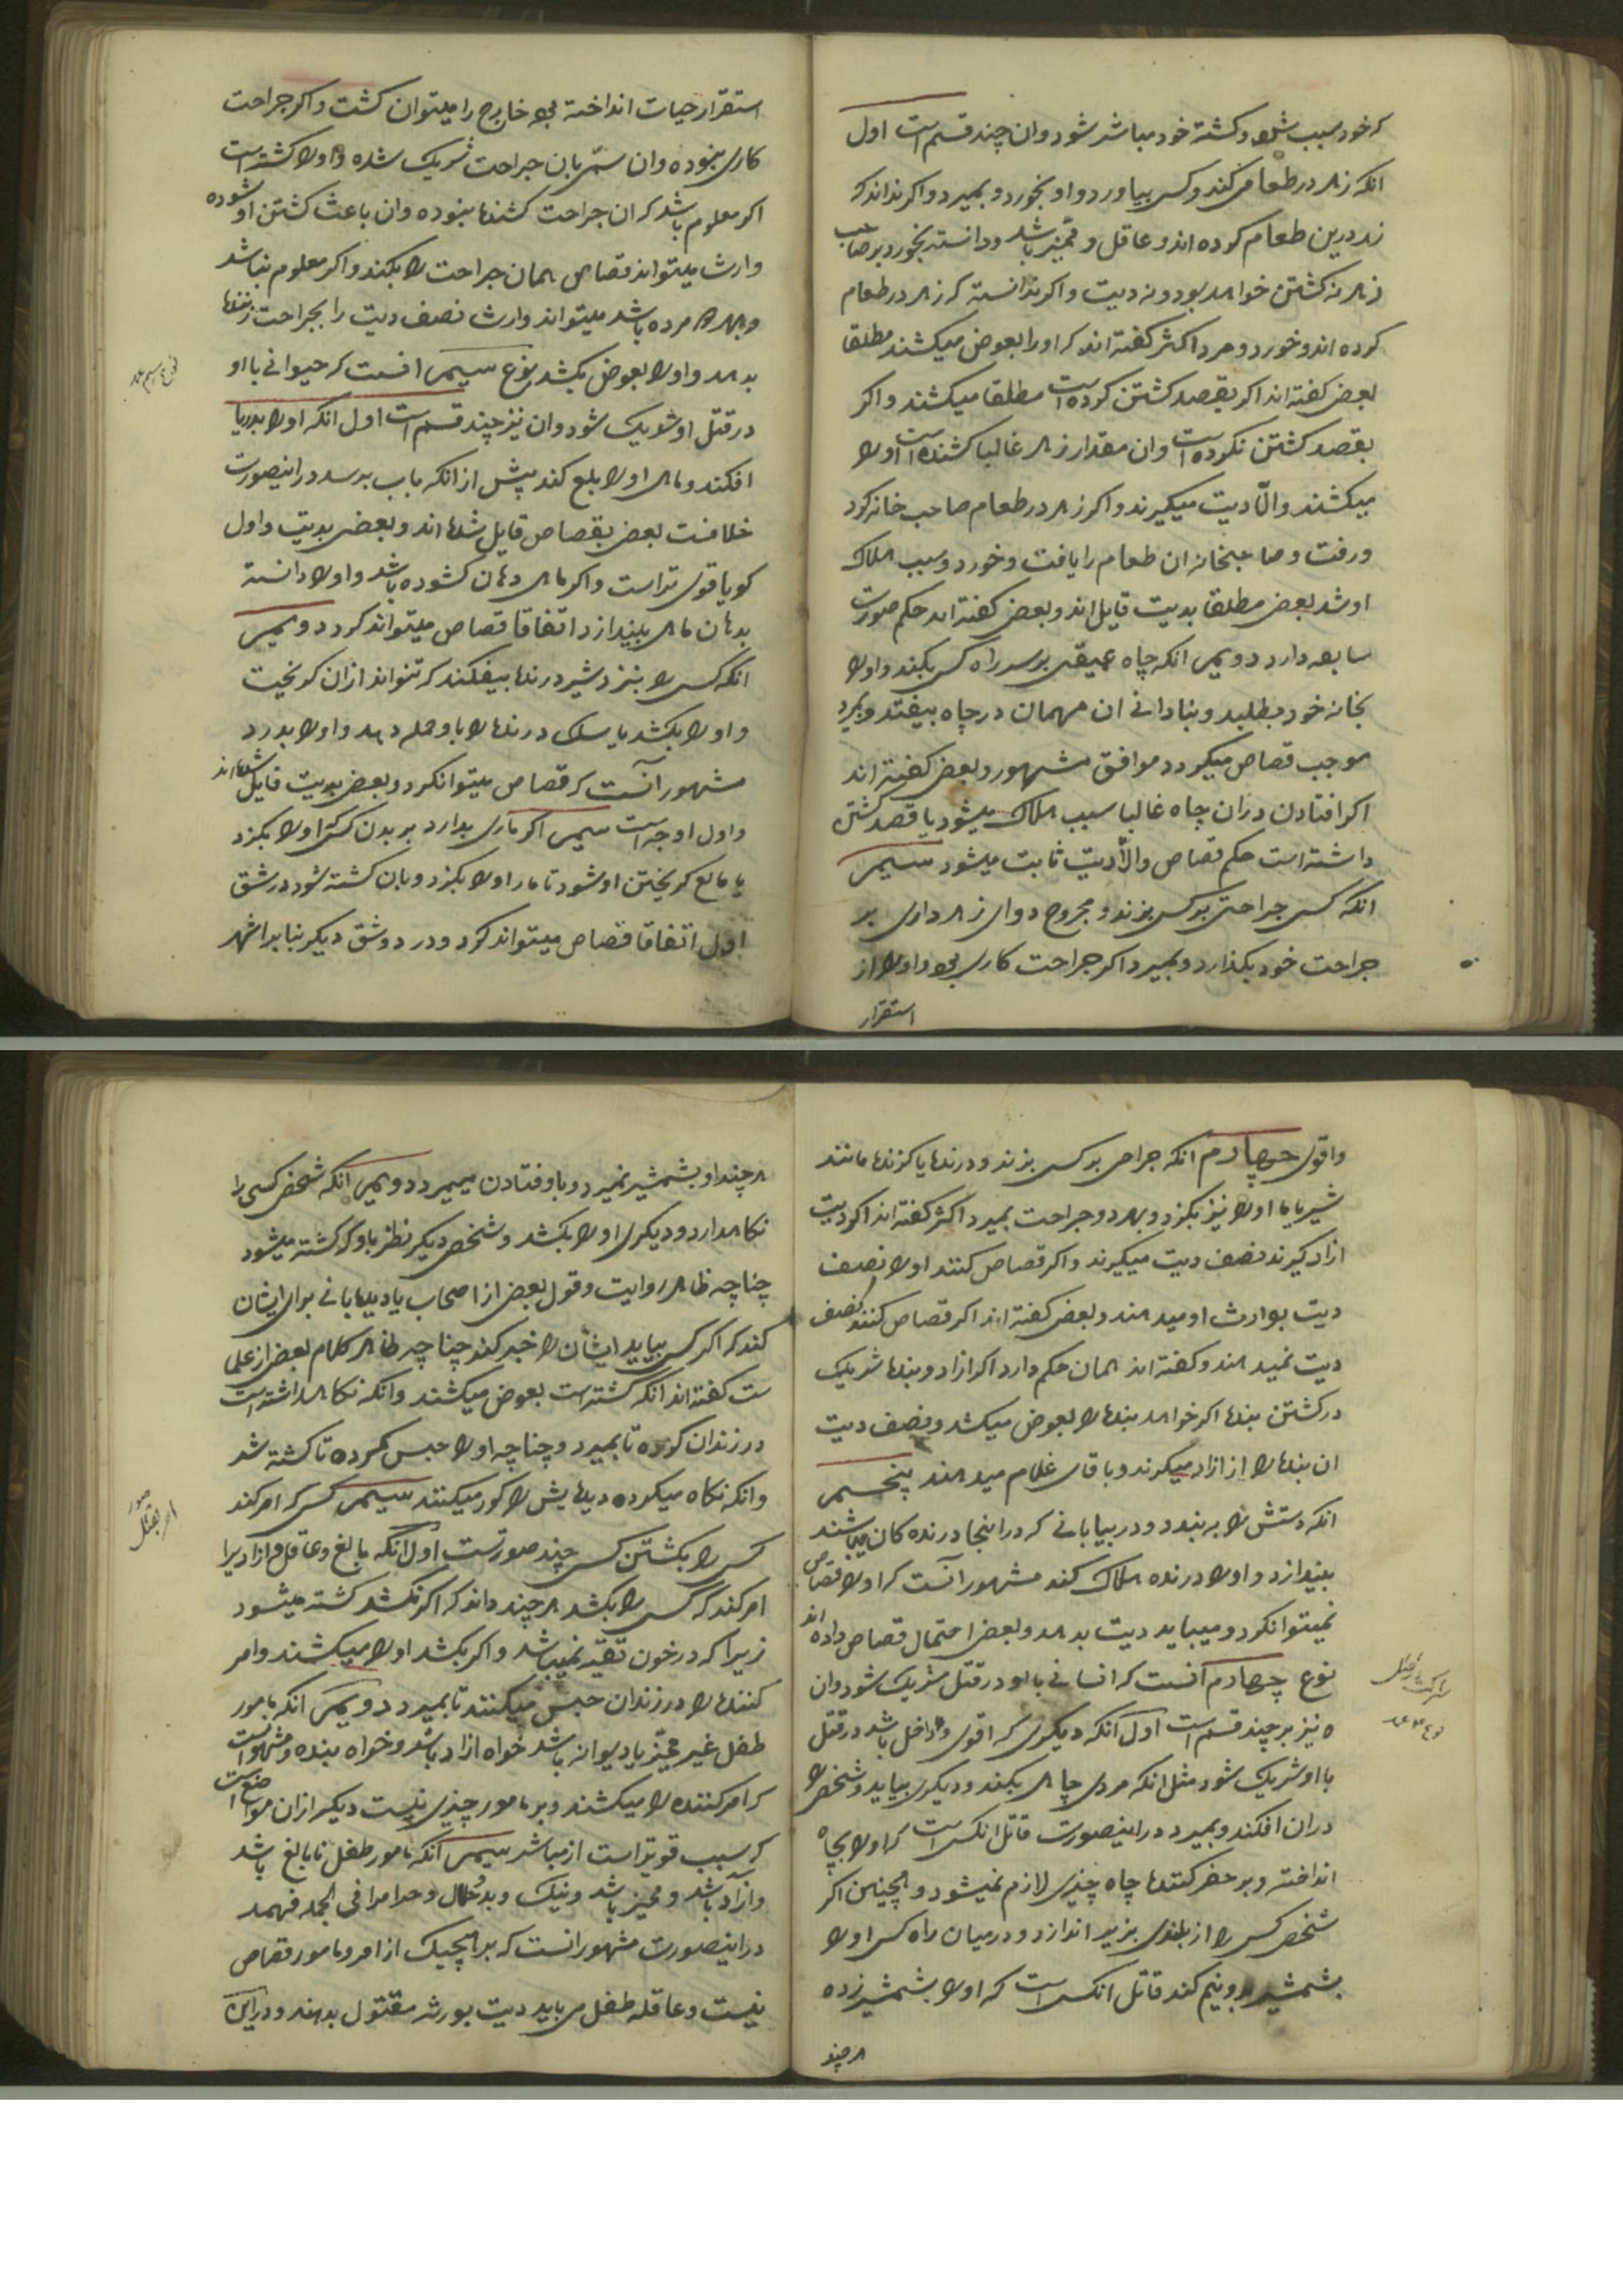 که خود سبب شده و کشته خود مباشر شود و ان چند قسم است اول
انکه زهر در طعامی کند و کسی بیاورد و او بخورد و بمیرد و اکر نداند که
زهر درین طعام کرده اند و عاقل و ممیز باشد و دانسته بخورد بر صاحب
زهر نه کشتن خواهد بود و نه دیت و اکر ندانسته که زهر در طعام
کرده اند و خورد و مرد اکثر کفته اند که او را بعوض میکشند مطلقا
بعضی کفته اند اکر بقصد کشتن کرده است مطلقا میکشند و اکر
بقصد کشتن نکرده است و ان مقدار زهر غالبا کشنده است او را
میکشند و الّا دیت میکیرند و اکر زهر در طعام صاحب خانه کرد
و رفت و صاحبخانه ان طعام را یافت و خورد و سبب هلاک
او شد بعضی مطلقا بدیت قایل اند و بعضی کفته اند حکم صورت
سابقه دارد دویم انکه چاه عمیقی بر سر راه کسی بکند و او را
بخانه خود بطلبد و بنادانی ان مهمان در چاه بیفتد و بمیرد
موجب قصاص میکردد موافق مشهور و بعضی کفته اند
اکر افتادن در ان چاه غالبا سبب هلاک میشود یا قصد کشتن
داشته است حکم قصاص و الّا دیت ثابت میشود سیم
انکه کسی جراحتی بر کسی بزند و مجروح دوای زهر داری بر
جراحت خود بکذارد و بمیرد اکر جراحت کاری بوده و او را از
استقرار
استقرار حیات انداخته بوده خارج را میتوان کشت و اکر جراحت
کاری نبوده و ان سمّ بان جراحت شریک شده و او را کشته است
اکر معلوم باشد که ان جراحت کشنده نبوده و ان باعث کشتن او شوده
وارث میتواند قصاص همان جراحت را بکند و اکر معلوم نباشد
و بهر دو مرده باشد میتواند وارث نصف دیت را بجراحت زننده
بدهد و او را بعوض بکشد نوع سیم انست که حیوانی با او
در قتل او شریک شود و ان نیز چند قسم است اول انکه او را بدریا
افکند و ماهی او را بلع کند پیش از انکه باب برسد در اینصورت
خلافست بعضی بقصاص قایل شده اند و بعضی بدیت و اول
کویا قوی تر است و اکر ماهی دهان کشوده باشد و او را دانسته
بدهان ماهی بیندازد اتفاقا قصاص میتواند کرد دویم
انکه کسی را بنزد شیر درنده بیفکند که نتواند از ان کریخت
و او را بکشد یا سک درنده را باو حمله دهد و او را بدرد
مشهور آنست که قصاص میتوانکرد و بعضی بدیت قایل شده اند
و اول اوجه است سیم اکر ماری بدارد بر بدن کسی که او را بکزد
یا مانع کریختن او شود تا مار او را بکزد و بان کشته شود در شق
اول اتفاقا قصاص میتواند کرد و در دو شق دیکر بنا بر اشهر
نوع سیم عمد
و اقوی چهارم انکه جراحی بر کسی بزند و درنده یا کزنده مانند
شیر یا مار او را نیز بکزد و بهر دو جراحت بمیرد اکثر کفته اند اکر دیت
از او کیرند نصف دیت میکیرند و اکر قصاص کنند او را نصف
دیت بوارث او میدهند و بعضی کفته اند اکر قصاص کنند نصف
دیت نمیدهند و کفته اند همان حکم دارد اکر ازاد و بنده شریک
در کشتن بنده اکر خواهد بنده را بعوض میکشد و نصف دیت
ان بنده را از ازاد میکیرند و باقای غلام میدهند پنجم
انکه دستش را به بندد و در بیابانی که در اینجا درنده کان میباشند
بیندازد و او را درنده هلاک کند مشهور آنست که او را قصاص
نمیتوانکرد و میباید دیت بدهد و بعضی احتمال قصاص داده اند
نوع چهارم آنست که انسانی با او در قتل شریک شود و ان
نیز بر چند قسم است اول آنکه دیکری که اقوی و داخل باشد در قتل
با او شریک شود مثل انکه مردی چاهی بکند و دیکری بیاید و شخصی را
در ان افکند و بمیرد در اینصورت قاتل انکس است که او را بچاه
انداخته و بر حفر کننده چاه چیزی لازم نمیشود و همچنین اکر
شخصی کسی را از بلندی بزیر اندازد و در میان راه کسی او را
بشمشیر دو نیم کند قاتل انکس است که او را بشمشیر زده
هر چند
نوع ۴ عمد
هر چند او بشمشیر نمیرد و باو فتادن میمیرد دویم آنکه شخصی کسی را
نکاهدارد و دیکری او را بکشد و شخصی دیکر نظر باو که کشته میشود
چنانچه ظاهر روایت و قول بعضی از اصحاب یا دیده بانی برای ایشان
کند که اکر کسی بیاید ایشان را خبر کند چنانچه ظاهر کلام بعضی از علما
ست کفته اند انکه کشته است بعوض میکشند و انکه نکاهداشته است
در زندان کرده تا بمیرد و چنانچه او را حبس کرده تا کشته شد
و انکه نکاه میکرده دیدهایش را کور میکنند سیم کسی که امر کند
کسی را بکشتن کسی چند صورتست اول انکه بالغ و عاقل و ازادیرا
امر کند که کسی را بکشد هر چند داند که اکر نکشد کشته میشود
زیرا که در خون تقیه نمیباشد و اکر بکشد او را میکشند و امر
کننده را در زندان حبس میکنند تا بمیرد دویم آنکه مامور
طفل غیر ممیز یا دیوانه باشد خواه ازاد باشد و خواه بنده و مشهور است
که امر کننده را میکشند و بر مامور چیزی نیست دیکر از ان مواضع است
که سبب قویتر است از مباشر سیم آنکه مامور طفل نابالغ باشد
و ازاد باشد و ممیز باشد و نیک و بد و حلال و حرامرا فی الجمله فهمد
در اینصورت مشهور انست که بر هیچیک از امر و مامور قصاص
نیست و عاقله طفل می باید دیت بورثه مقتول بدهند و در این
امر بقتل